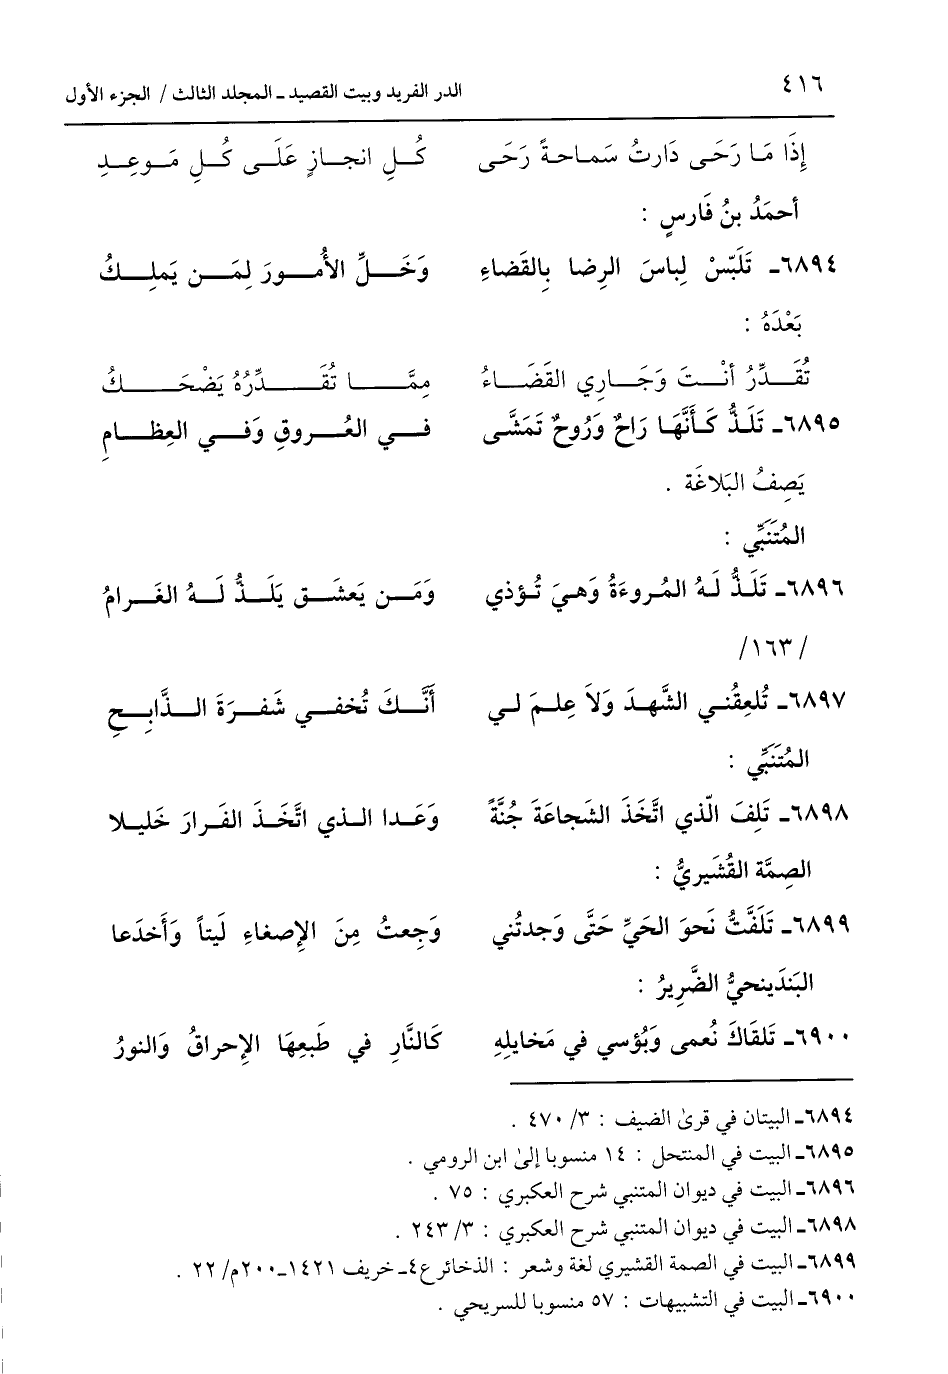 ٤١٦ الدر الفريد وبيت القصيد ـ المجلد الثالث / الجزء الأول
إِذَا مَا رَحَى دَارتْ سَماحةً رَحَى كُلِ انجازٍ عَلَى كُلِ مَوعِدِ
أحمَدُ بنُ فَارسٍ :
٦٨٩٤ـ تَلَبّسْ لِباسَ الرِضا بِالقَضاءِ وَخَلِّ الأُمورَ لِمَن يَملِكُ
بَعْدَهُ :
تُقَدِّرُ أنْتَ وَجَارِي القَضَاءُ مِمَّا تُقَدِّرُهُ يَضْحَكُ
٦٨٩٥ـ تَلَذُّ كَأنَّهَا رَاحٌ وَرُوحٌ تَمَشَّى في العُروقِ وَفي العِظامِ
يَصِفُ البَلاغَة .
المُتَنَبِّي :
٦٨٩٦ـ تَلَذُّ لَهُ المُروءَةُ وَهيَ تُؤذي وَمَن يَعشَق يَلَذُّ لَهُ الغَرامُ
/١٦٣/
٦٨٩٧ـ تُلعِقُني الشَّهدَ وَلاَ عِلمَ لي أَنَّكَ تُخفي شَفرَةَ الذَّابِحِ
المُتَنَبِّي :
٦٨٩٨ـ تَلِفَ الّذي اتَّخَذَ الشَجاعَةَ جُنَّةً وَعَدا الذي اتَّخَذَ الفَرارَ خَليلا
الصِمَّة القُشَيريُّ :
٦٨٩٩ـ تَلَفَّتُّ نَحوَ الحَيِّ حَتَّى وَجدتُني وَجعتُ مِنَ الإصغاءِ لَيتاً وَأَخدَعا
البَندَينحيُّ الضَّرِيرُ :
٦٩٠٠ـ تَلقَاكَ نُعمى وَبُؤسي في مَخايلِهِ كَالنَّارِ في طَبعِهَا الإحراقُ وَالنورُ
٦٨٩٤ـ البيتان في قرىٰ الضيف : ٣/ ٤٧٠ .
٦٨٩٥ـ البيت في المنتحل : ١٤ منسوبا إلىٰ ابن الرومي .
٦٨٩٦ـ البيت في ديوان المتنبي شرح العكبري : ٧٥ .
٦٨٩٨ـ البيت في ديوان المتنبي شرح العكبري : ٣/ ٢٤٣ .
٦٨٩٩ـ البيت في الصمة القشيري لغة وشعر : الذخائر ع٤ـ خريف ١٤٢١ـ٢٠٠م/ ٢٢ .
٦٩٠٠ـ البيت في التشبيهات : ٥٧ منسوبا للسريحي .